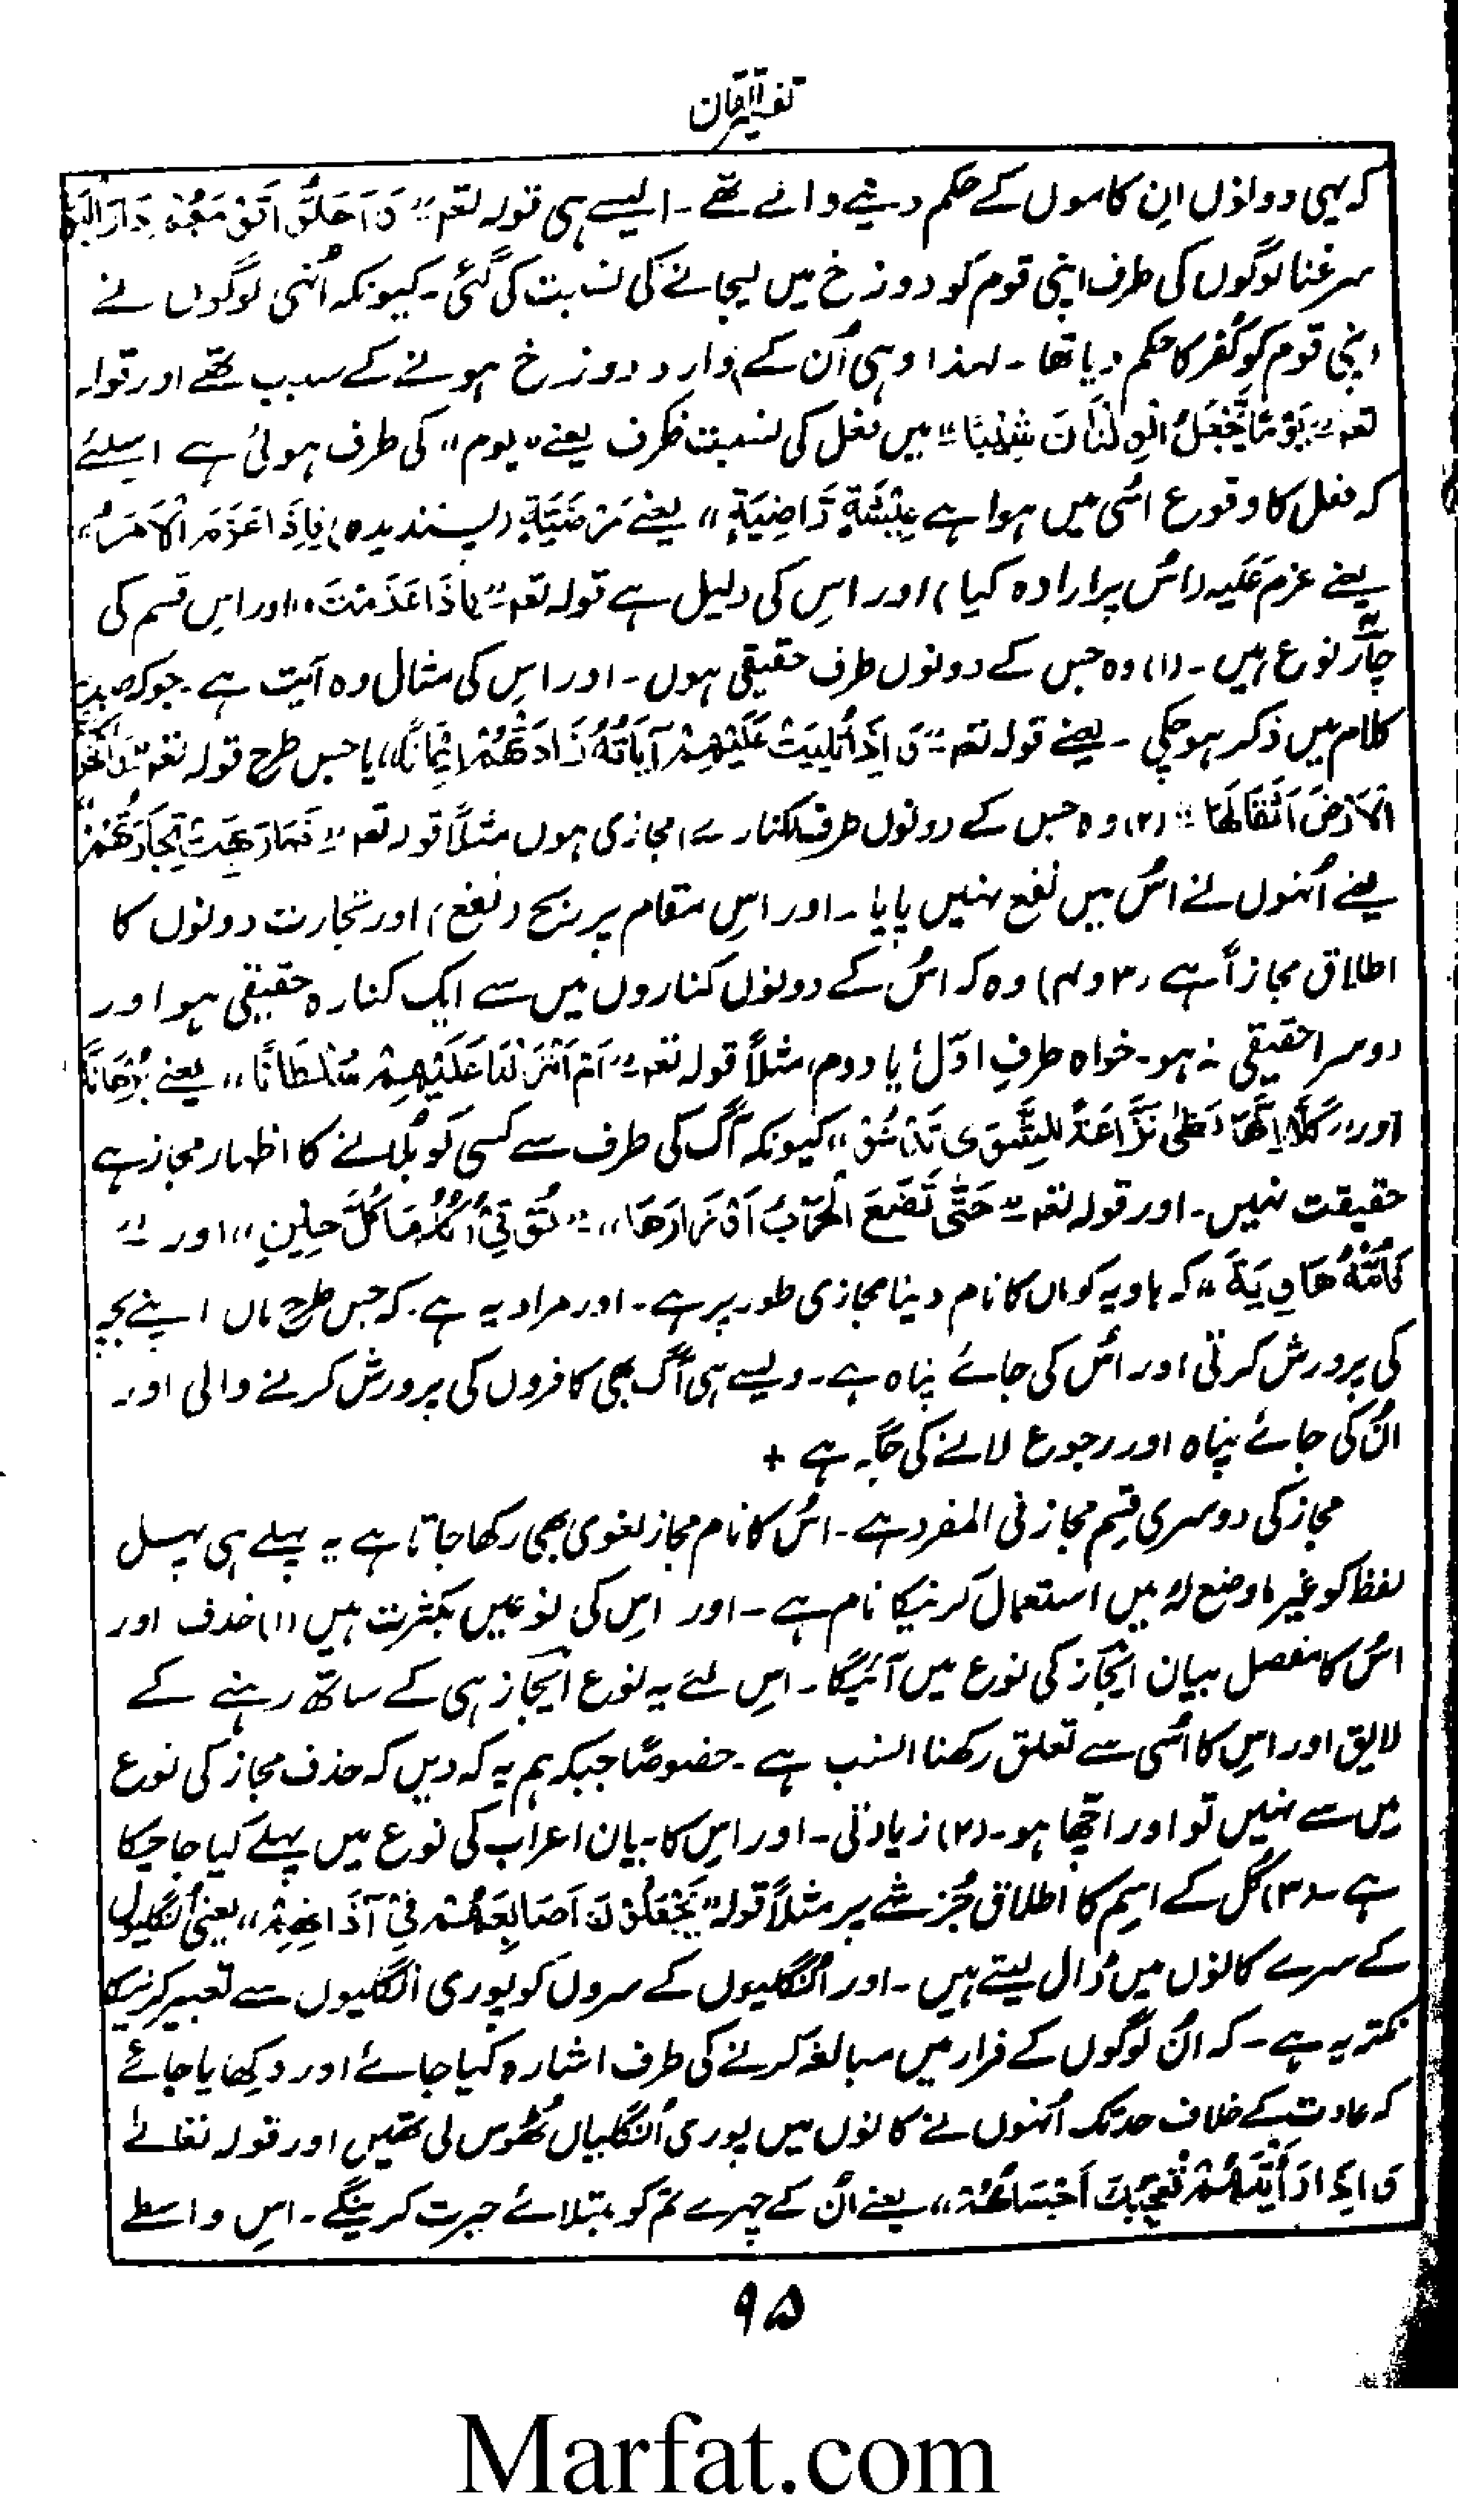 تفسیر اتقان
کہ یہی دونوں اِن کاموں کے حکم دینے والے تھے۔ ایسے ہی قولہ تعہ "وَاَحَلُّوْا قَوْمَهُمْ دَارَ الْبَوَ
سرغنا لوگوں کی طرف اپنی قوم کو دوزخ میں لیجانے کی نسبت کی گئی۔ کیونکہ اُنہی لوگوں نے
اپنی قوم کو کُفر کا حکم دیا تھا۔ لہذا وہی اُن کے وارد دوزخ ہونے کے سبب تھے اور قولہ
تعہ "یَوْمًا یَّجْعَلُ الْوِلْدَانَ شِیْبًا" میں فعل کی نسبت ظرف یعنے "یوم" کی طرف ہوئی ہے اسلئے
کہ فعل کا وقوع اُسی میں ہوا ہے عِیْشَةٍ رَّاضِیَةٍ" یعنے مَرْضِیَّةٍ (پسندیدہ) فَاِذَا عَزَمَ الْاَمْرُ"
یعنے عزم عَلَیہ (اُس پر ارادہ کیا) اور اِس کی دلیل ہے قولہ تعہ "فَاِذَا عَزَمْتَ" اور اِس قسم کی
چار نوع ہیں۔ (۱) وہ جس کے دونوں طرف حقیقی ہوں۔ اور اِس کی مثال وہ آیت ہے۔ جو کہ صدر
کلام میں ذکر ہو چکی۔ یعنے قولہ تعہ "وَاِذَا تُلِیَتْ عَلَیْهِمْ آیَاتُهُ زَادَتْهُمْ اِیْمَانًا" یا جس طرح قولہ تعہ "وَاَخْرَ
الْاَرْضُ اَثْقَالَهَا" (۲) وہ جس کے دونوں طرف (کنارے) مجازی ہوں مثلاً قولہ تعہ "فَمَا رَبِحَتْ تِجَارَتُهُمْ"
یعنے اُنہوں نے اُس میں نفع نہیں پایا۔ اور اِس مقام پر ربح (نفع) اور تجارت دونوں کا
اطلاق مجازاً ہے (۳ و ۴) وہ کہ اُس کے دونوں کناروں میں سے ایک کنارہ حقیقی ہو اور
دوسرا حقیقی نہ ہو۔ خواہ طرفِ اوّل یا دوم، مثلاً قولہ تعہ "اَمْ اَنْزَلْنَا عَلَیْهِمْ سُلْطَانًا" یعنے بُرْهَانًا
اور "كَلَّا اِنَّهَا لَظٰی نَزَّاعَةً لِلشَّوٰی تَدْعُوْ" کیونکہ آگ کی طرف سے کسی کو بُلانے کا اظہار مجاز ہے
حقیقت نہیں۔ اور قولہ تعہ "حَتّٰی تَضَعَ الْحَرْبُ اَوْزَارَهَا"، "تُؤْتِیْ اُكُلَهَا كُلَّ حِیْنٍ" اور "
فَاُمُّهُ هَاوِیَةٌ" کہ ہاویہ کو ماں کا نام دینا مجازی طور پر ہے۔ اور مراد یہ ہے۔ کہ جس طرح ماں اپنے بچہ
کی پرورش کرتی اور اُس کی جائے پناہ ہے۔ ویسے ہی آگ بھی کافروں کی پرورش کرنے والی اور
اُن کی جائے پناہ اور رجوع لانے کی جگہ ہے +
مجاز کی دوسری قِسم مجاز فی المفرد ہے۔ اُس کا نام مجاز لغوی بھی رکھا جاتا ہے یہ پہلے ہی پہل
لفظ کو غیر ما وضع لہٗ میں استعمال کرنیکا نام ہے۔ اور اِس کی نوعیں بکثرت ہیں (۱) حذف اور
اُس کا مفصل بیان ایجاز کی نوع میں آئیگا۔ اِس لئے یہ نوع ایجاز ہی کے ساتھ رہنے کے
لایق اور اِس کا اُسی سے تعلق رکھنا انسب ہے۔ خصوصًا جبکہ ہم یہ کہ دیں کہ حذف مجاز کی نوع
میں سے نہیں تو اور اچّھا ہو۔ (۲) زیادتی۔ اور اِس کا بیان اعراب کی نوع میں پہلے کیا جا چکا
ہے۔ (۳) کُل کے اسِم کا اطلاق جُز شے پر مثلاً قولہ "یَجْعَلُوْنَ اَصَابِعَهُمْ فِیْ آذَانِهِمْ" یعنی اُنگلیوں
کے سرے کانوں میں ڈال لیتے ہیں۔ اور اُنگلیوں کے سروں کو پوری اُنگلیوں سے تعبیر کرنیکا
نکتہ یہ ہے۔ کہ اُن لوگوں کے فرار میں مبالغہ کرنے کی طرف اشارہ کیا جائے اور دکھایا جائے
کہ عادت کے خلاف حد تک اُنہوں نے کانوں میں پوری اُنگلیاں ٹھوس لی تھیں اور قولہ تعالےٰ
وَاِذَا رَأَیْتَهُمْ تُعْجِبُكَ اَجْسَامُهُمْ" یعنے اُن کے چہرے تم کو مبتلائے حیرت کرینگے۔ اِس واسطے
۹۵
Marfat.com